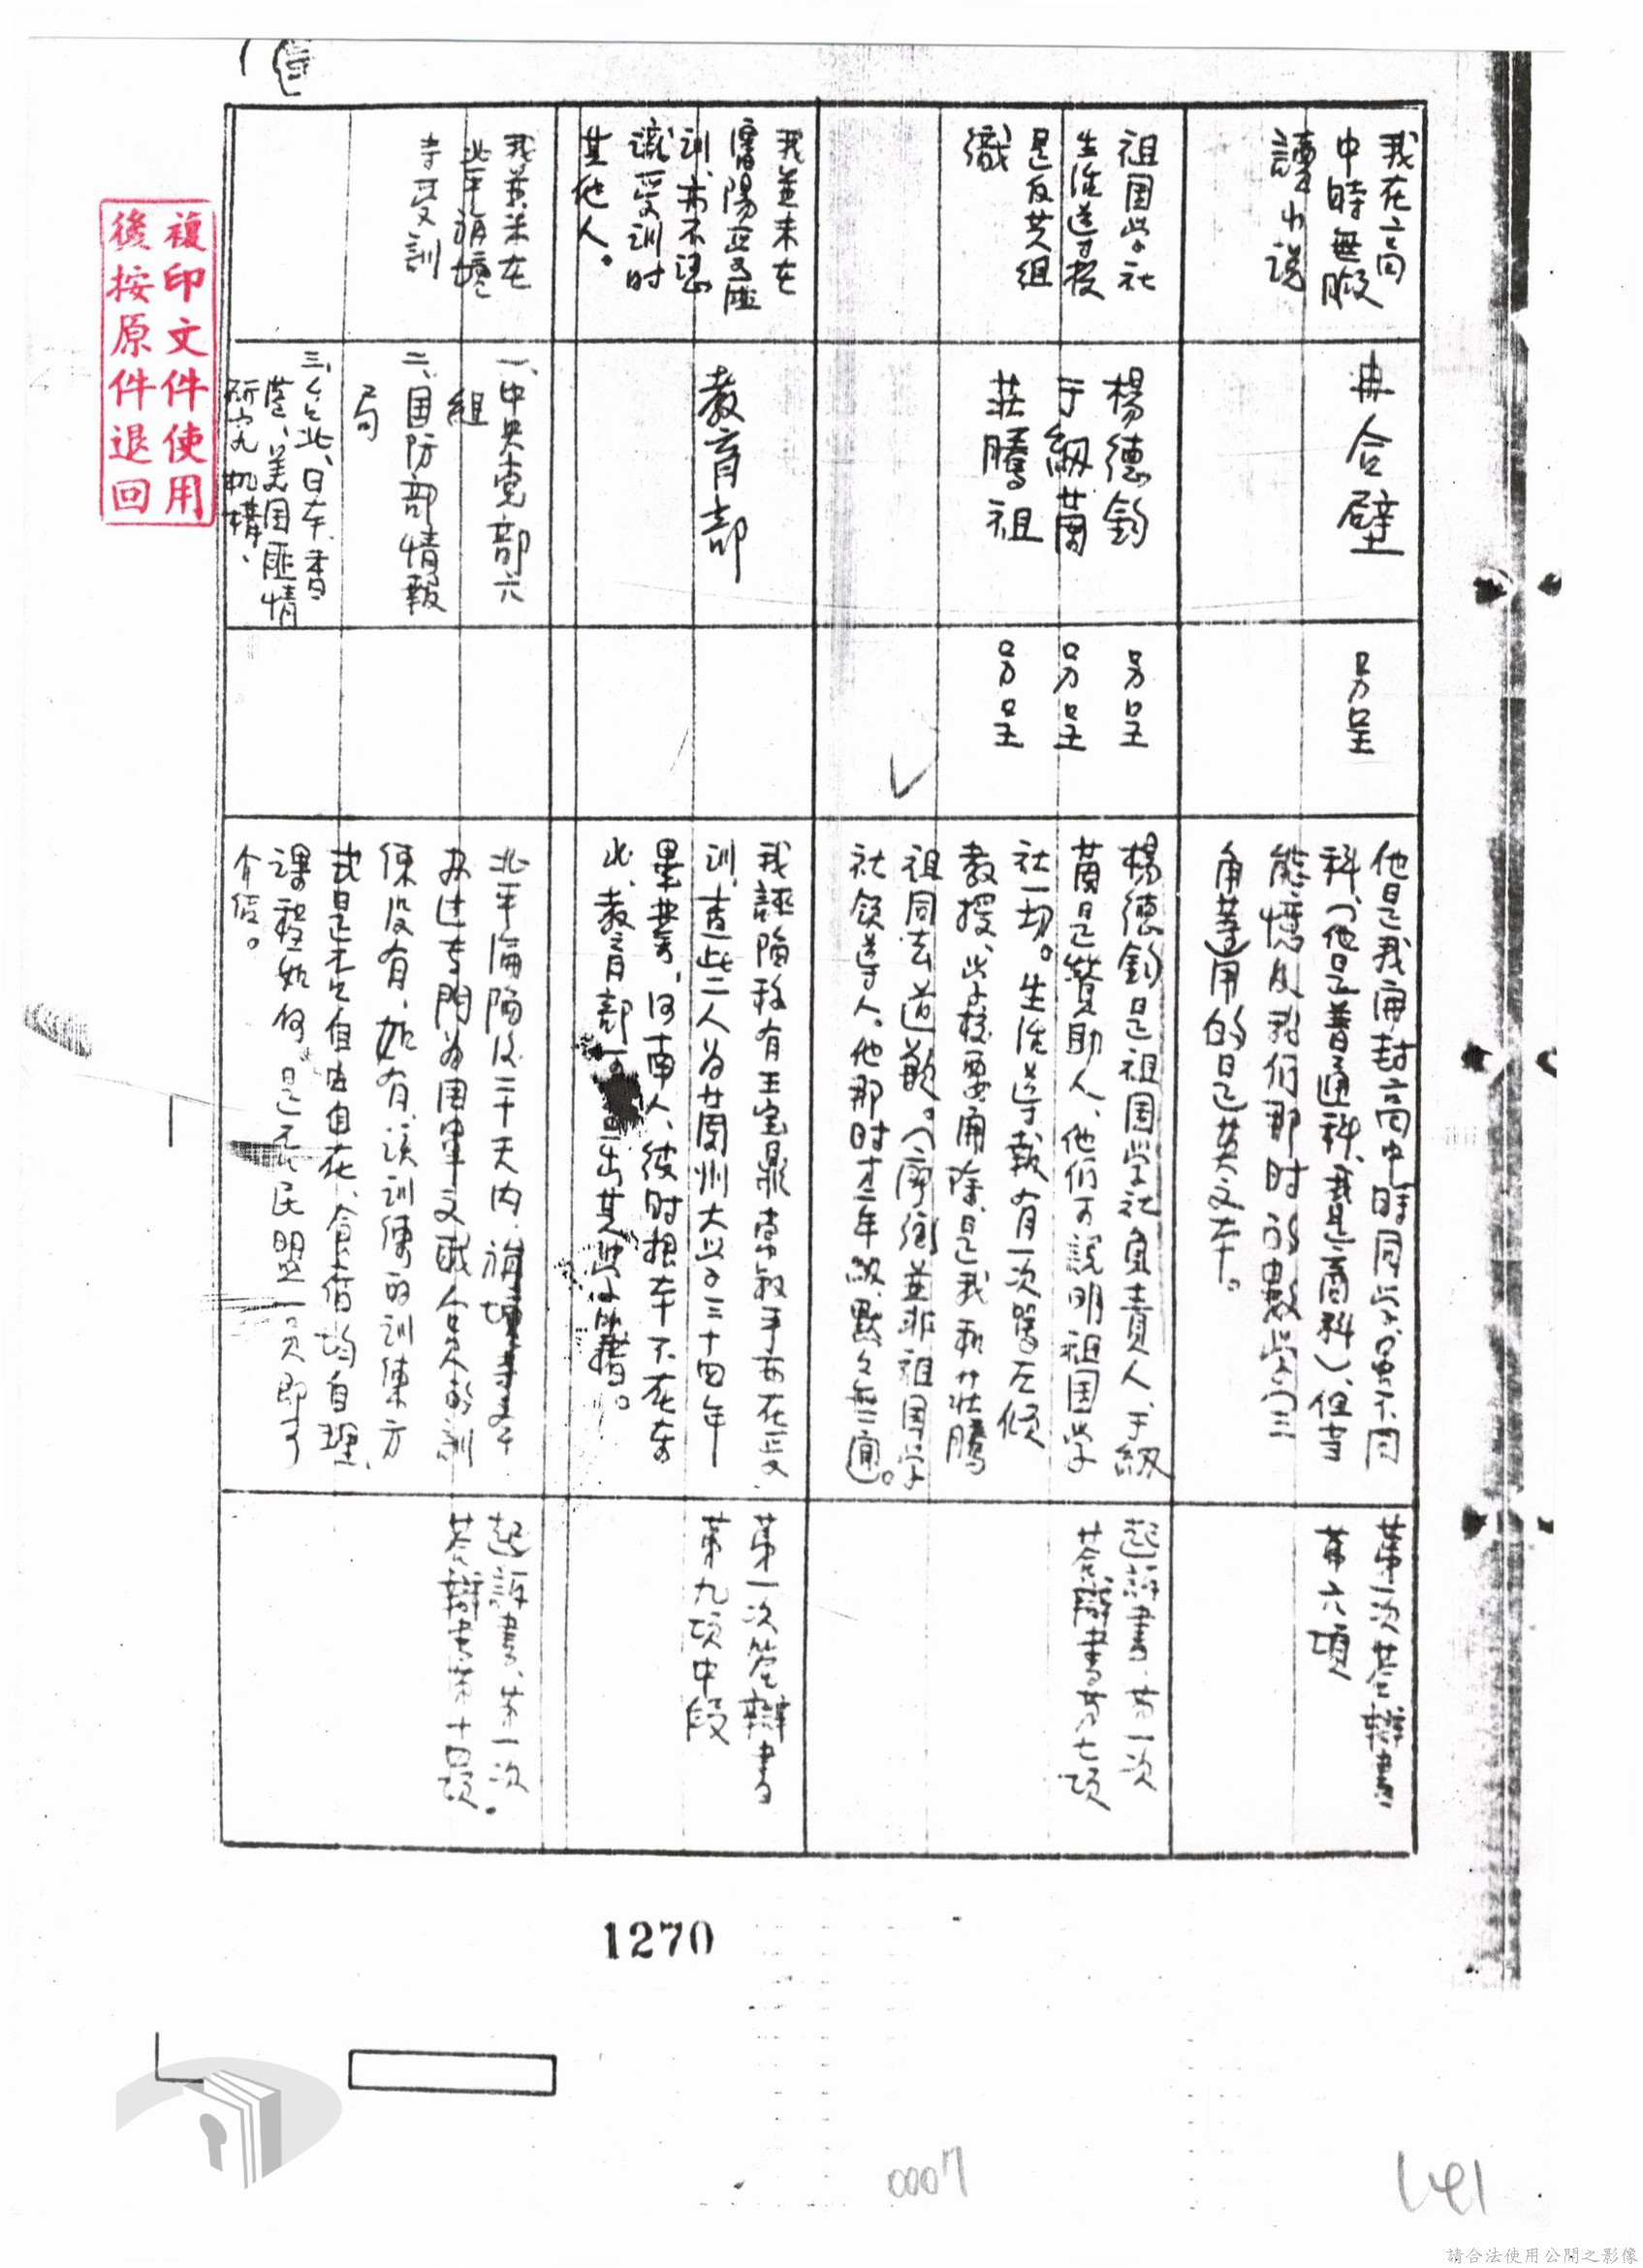 我在高
中時無暇
讀小说
冉合壁
另呈
他是我開封高中時同学,雖不同
科、(他是普通科、我是商科)、但当
能憶及我们那时的數学、三
角、藎用的是英文本。
第一次答辯書
第六項
祖国学社
生准送
是反共組
織
楊德鈞
于紉蘭
莊騰祖
另呈
另呈
另呈
楊德鈞是祖国学社負責人、于紉
蘭是贊助人、他们可說明祖国学
社一切。生准送報有一次罵左傾
教授、学校要開除、是我和莊騰
祖同去道歉。(廖衡並非祖国学
社領導人。他那时才二年級、默々無聞。
起訴書、第一次
答辯書第七項
我並未在
瀋陽
訓、亦不認
識受训时
其他人。
教育部
我誣陷称有王宝鼎、亦在受
訓、查此二人为蘭州大学三十四年
畢業、河南人、彼时根本不在东
北、教育部可出其学籍。
第一次答辯書
第九項中段
我並未在
北平旃壇
寺受訓
一、中央党部六
組
二、国防部情報
局
三、台北、日本、香
港、美国匪情
研究机構、
北平淪陷後三十天内、旃壇寺
办过专門为国軍文职人員的訓
練没有、如有、該訓練的訓練方
式是否自由自在、食宿均自理、
課程如何、是否民盟一員即可
介信。
起訴書、第一次
答辯書第十四項。
複印文件使用
後按原件退回
1270
0007
141
請合法使用公開之影像